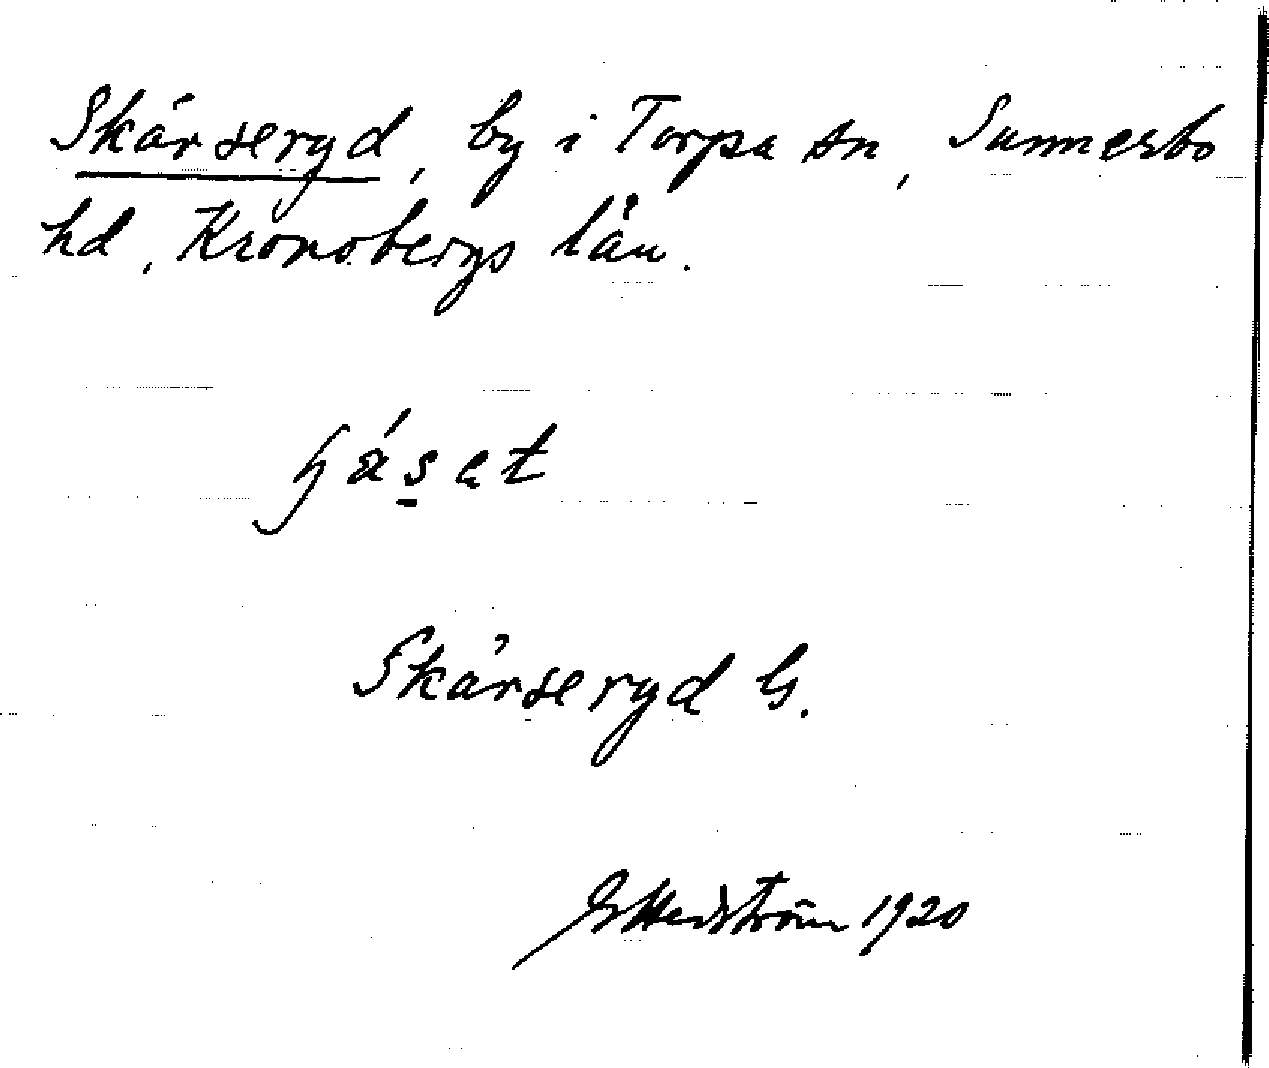 Skärseryd, by i Torpa sn, Sunnerbo
hd, Kronobergs län.
Skärseryd G.
G Hedström 1920